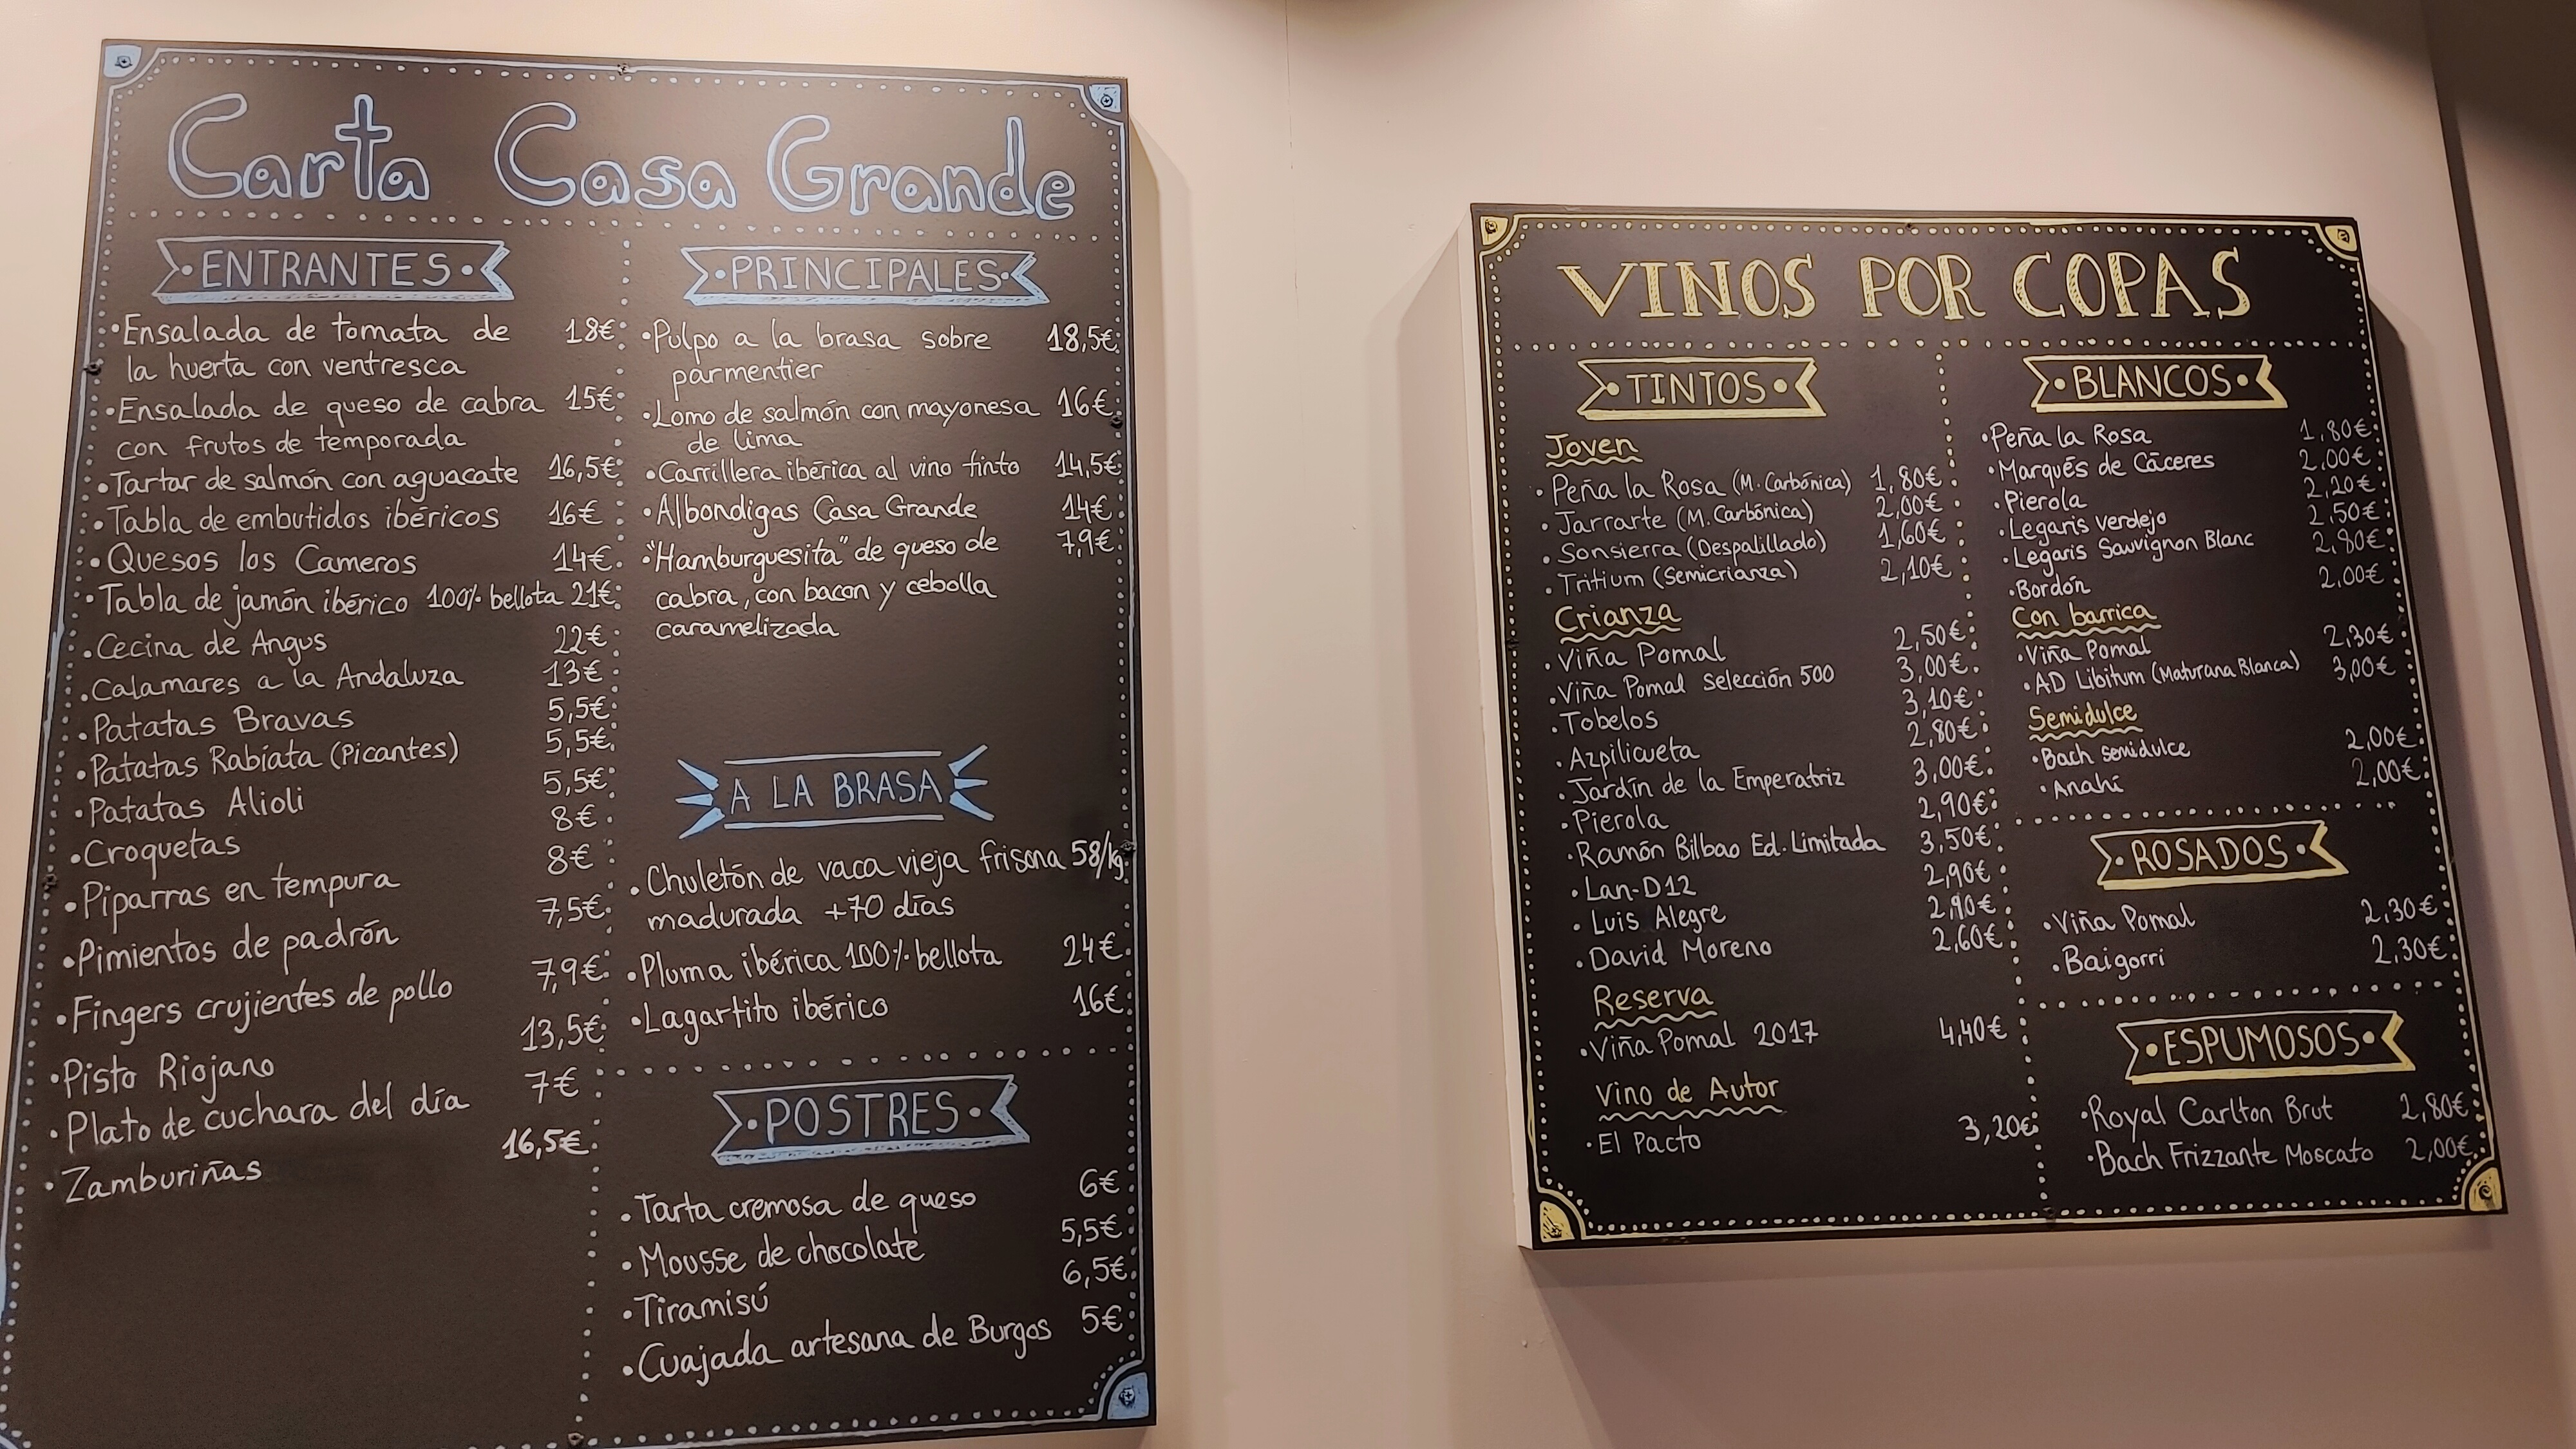 Carta Casa Grande
ENTRANTES
•Ensalada de tomata de 18€
la huerta con ventresca
•Ensalada de queso de cabra 15€
con frutos de temporada
•Tartar de salmón con aguacate 16,5€
•Tabla de embutidos ibéricos 16€
•Quesos los Cameros 14€
•Tabla de jamón ibérico 100% bellota 21€
•Cecina de Angus 22€
•Calamares a la Andaluza 13€
•Patatas Bravas 5,5€
•Patatas Rabíata (Picantes) 5,5€
•Patatas Alioli 5,5€
•Croquetas 8€
•Piparras en tempura 8€
•Pimientos de padrón 7,5€
•Fingers crujientes de pollo 7,9€
•Pisto Riojano 13,5€
•Plato de cuchara del día 7€
•Zamburiñas 16,5€
PRINCIPALES
•Pulpo a la brasa sobre 18,5€
parmentier
•Lomo de salmón con mayonesa 16€
de lima
•Carrillera ibérica al vino tinto 14,5€
•Albondigas Casa Grande 14€
•"Hamburguesita" de queso de 7,9€
cabra, con bacon y cebolla
caramelizada
A LA BRASA
•Chuletón de vaca vieja frisona 58/kg
madurada +70 días
•Pluma ibérica 100% bellota 24€
•Lagartito ibérico 16€
POSTRES
•Tarta cremosa de queso 6€
•Mousse de chocolate 5,5€
•Tiramisú 6,5€
•Cuajada artesana de Burgos 5€
VINOS POR COPAS
•TINTOS•
Joven
•Peña la Rosa (M. Carbónica) 1,80€
•Jarrarte (M. Carbónica) 2,00€
•Sonsierra (Despalillado) 1,60€
•Tritium (Semicrianza) 2,10€
Crianza
•Viña Pomal 2,50€
•Viña Pomal Selección 500 3,00€
•Tobelos 3,10€
•Azpilicueta 2,80€
•Jardín de la Emperatriz 3,00€
•Pierola 2,90€
•Ramón Bilbao Ed. Limitada 3,50€
•Lan-D12 2,90€
•Luis Alegre 2,90€
•David Moreno 2,60€
Reserva
•Viña Pomal 2017 4,40€
Vino de Autor
•El Pacto 3,20€
•BLANCOS•
•Peña la Rosa 1,80€
•Marqués de Cáceres 2,00€
•Pierola 2,20€
•Legaris Verdejo 2,50€
•Legaris Sauvignon Blanc 2,80€
•Bordón 2,00€
Con barrica
•Viña Pomal 2,30€
•AD Libitum (Maturana Blanca) 3,00€
Semidulce
•Bach semidulce 2,00€
•Anahí 2,00€
•ROSADOS•
•Viña Pomal 2,30€
•Baigorri 2,30€
•ESPUMOSOS•
•Royal Carlton Brut 2,80€
•Bach Frizzante Moscato 2,00€